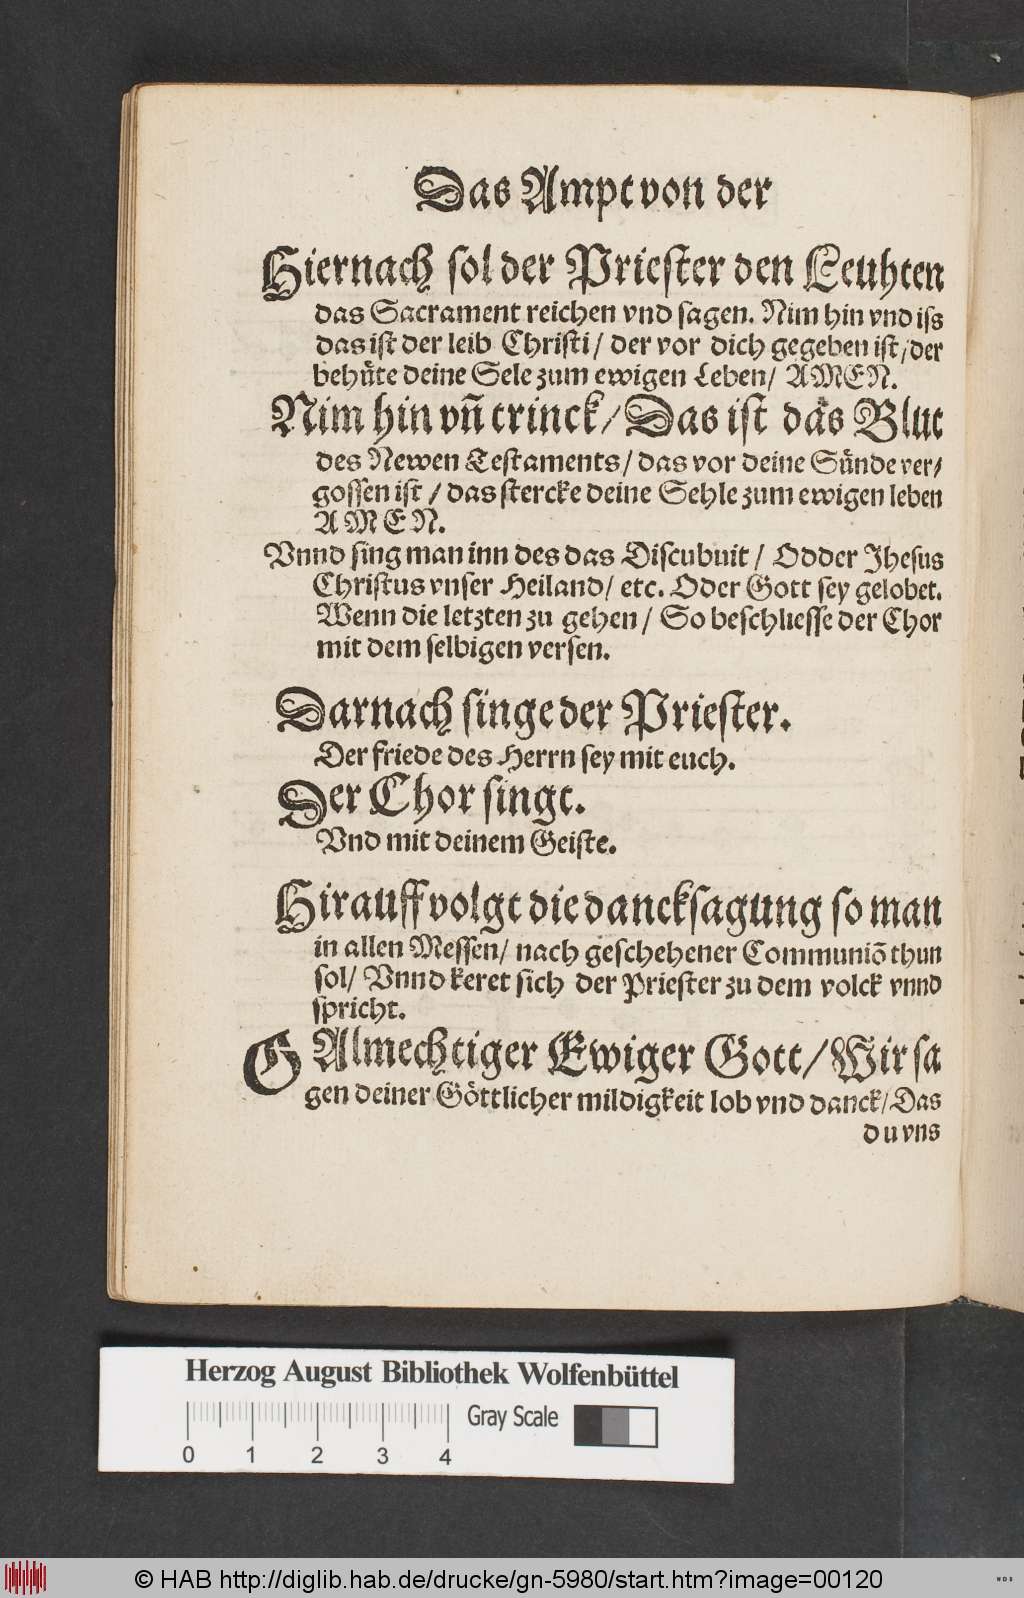 Das Ampt von der
Hiernach sol der Priester den Leuhten
das Sacrament reichen vnd sagen. Nim hin vnd iss
das ist der leib Christi / der vor dich gegeben ist / der
behüte deine Sele zum ewigen Leben / AMEN.
Nim hin vñ trinck / Das ist das Blut
des Newen Testaments / das vor deine Sünde ver-
gossen ist / das stercke deine Sehle zum ewigen leben
AMEN.
Vnnd sing man inn des das Discubuit / Odder Jhesus
Christus vnser Heiland / etc. Oder Gott sey gelobet.
Wenn die letzten zu gehen / So beschliesse der Chor
mit dem selbigen versen.
Darnach singe der Priester.
Der friede des Herrn sey mit euch.
Der Chor singt.
Vnd mit deinem Geiste.
Hirauff volgt die dancksagung so man
in allen Messen / nach geschehener Communiõ thun
sol / Vnnd keret sich der Priester zu dem volck vnnd
spricht.
O Almechtiger Ewiger Gott / Wir sa
gen deiner Göttlicher mildigkeit lob vnd danck / Das
du vns
Herzog August Bibliothek Wolfenbüttel
Gray Scale
0 1 2 3 4
© HAB http://diglib.hab.de/drucke/gn-5980/start.htm?image=00120